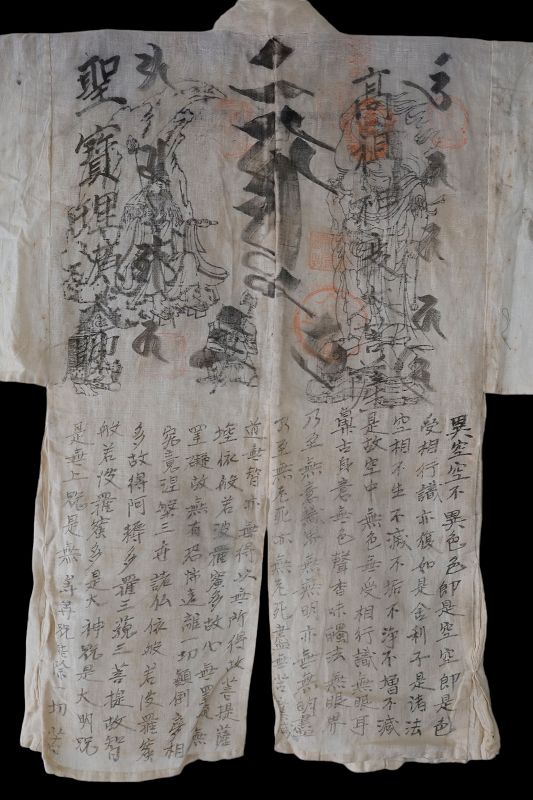 高祖神変大菩薩
聖寳理源大師
異空空不異色色即是空空即是色
受相行識亦復如是舎利子是諸法
空相不生不滅不垢不浄不増不減
是故空中無色無受相行識無眼耳
鼻舌身意無色聲香味觸法無眼界
乃至無意識界無無明亦無無明盡
乃至無老死亦無老死盡無苦集
道無智亦無得以無所得故菩提薩
埵依般若波羅蜜多故心無罣礙無
罣礙故無有恐怖遠離切顛倒夢相
究竟涅槃三世諸仏依般若波羅蜜
多故得阿耨多羅三藐三菩提故智
般若波羅蜜多是大神呪是大明呪
是無上呪是無等等呪能除一切苦